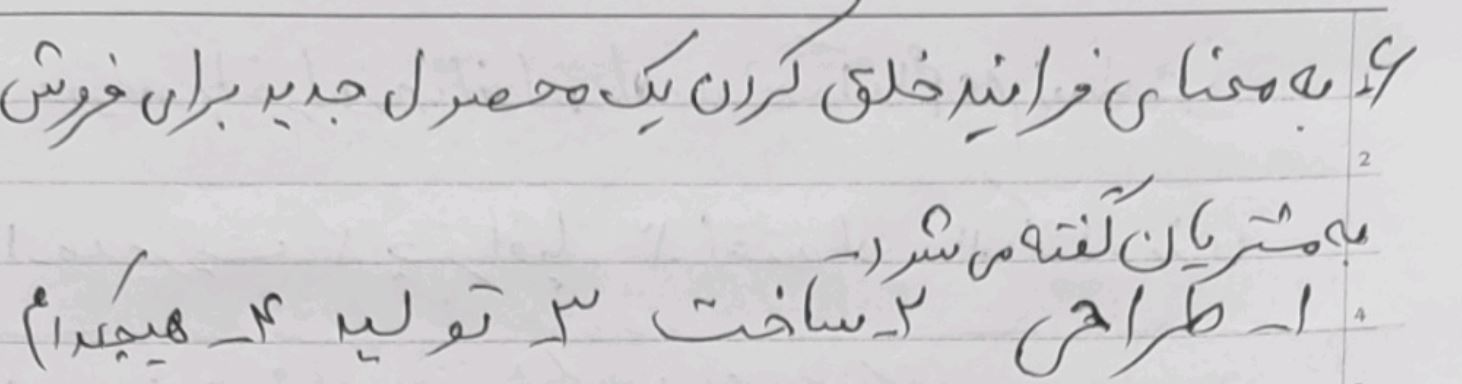 ۶. به معنای فرایند خلق کردن یک محصول جدید برای فروش
به مشتریان گفته می شود.
۱_ طراحی ۲_ ساخت ۳_ تولید ۴_ هیچکدام
2
4